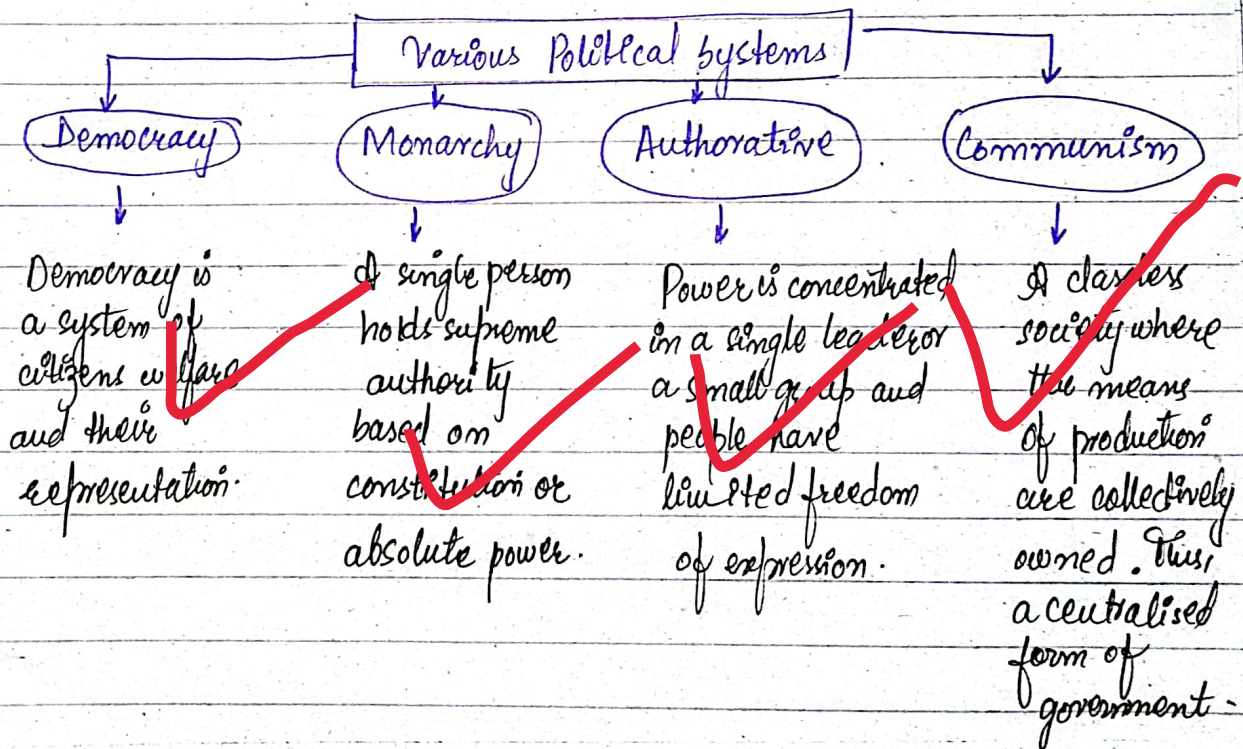 Various Political Systems
Democracy
Monarchy
Authorative
Communism
Democracy is
a system of
citizens welfare
and their
representation.
A single person
holds supreme
authority
based on
constitution or
absolute power.
Power is concentrated
in a single leader or
a small group and
people have
limited freedom
of expression.
A classless
society where
the means
of production
are collectively
owned. Thus,
a centralised
form of
government-